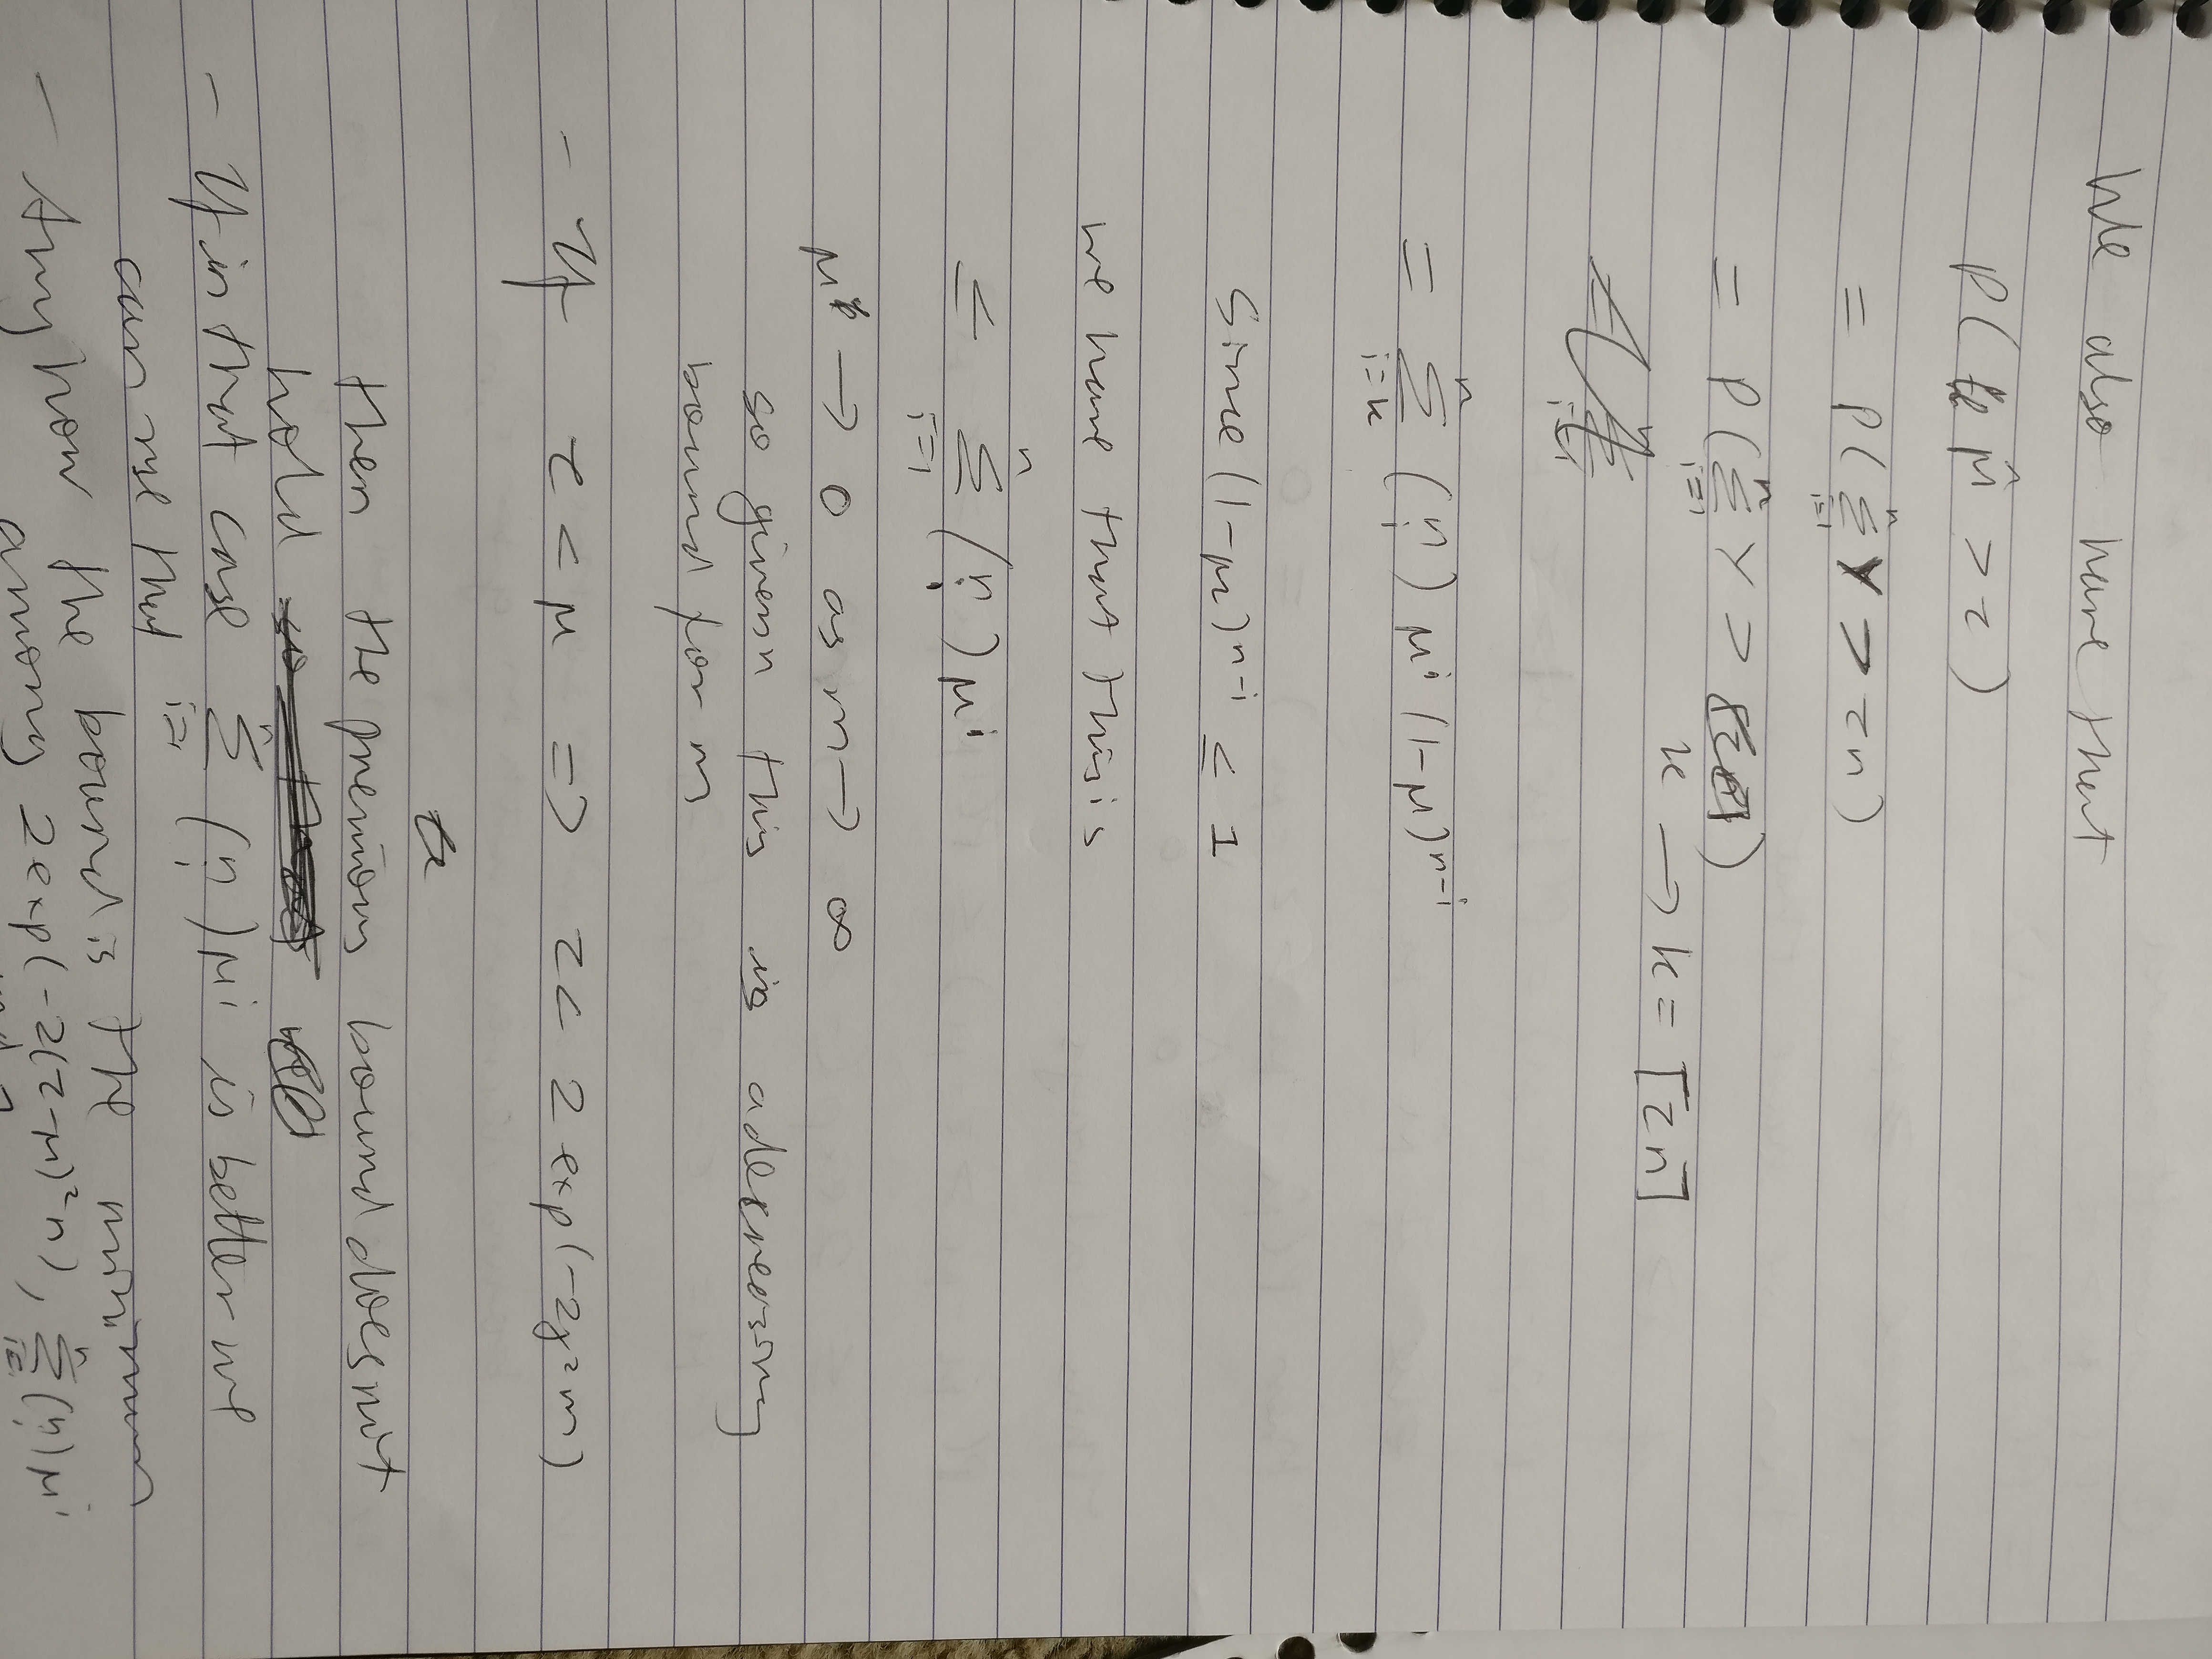 We also have that
P( μ̂ > z )
= P( Σ_{i=1}^{n} Y > zn )
= P( Σ_{i=1}^{n} Y > )
k → k = ⌈zn⌉
= Σ_{i=k}^{n} (n i) μ^i (1-μ)^{n-i}
Since (1-μ)^{n-i} ≤ 1
we have that this is
≤ Σ_{i=1}^{n} (n i) μ^i
μ^i → 0 as n → ∞
so given this is a decreasing
bound for n
- If z < μ => z < 2 exp(-2γ²n)
then the previous bound does not
hold
- If in that case Σ_{i=1}^{n} (n i) μ^i is better we
can use that
- Anyhow the bound is the minimum
among 2exp(-2(z-μ)²n), Σ_{i=1}^{n} (n i) μ^i